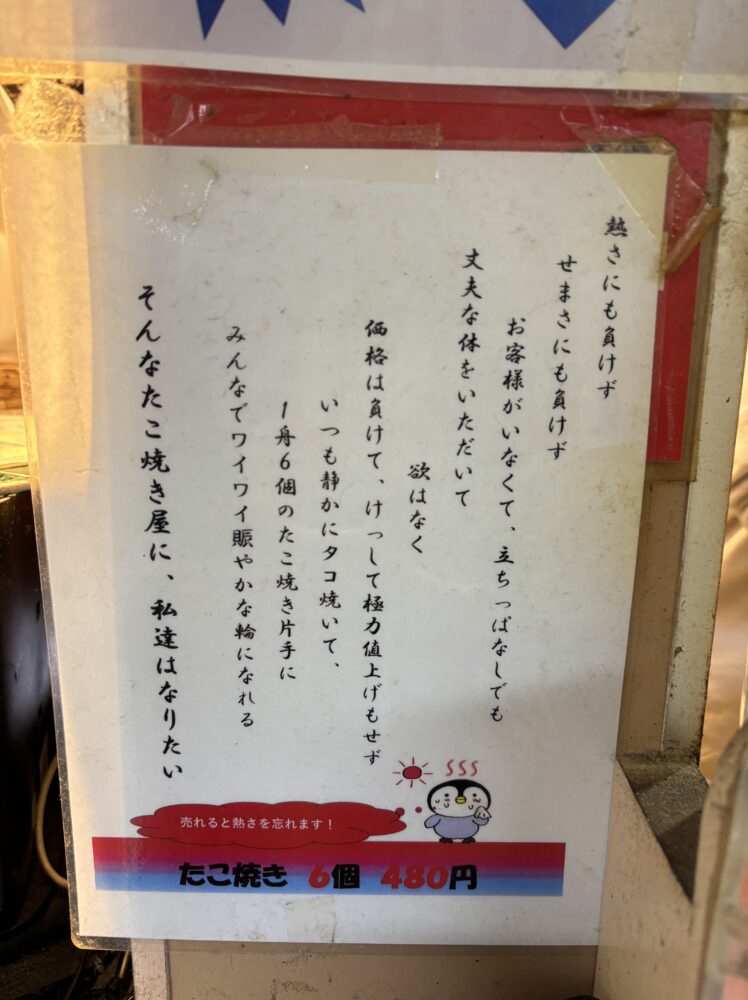 熱さにも負けず
せまさにも負けず
お客様がいなくて、立ちっぱなしでも
丈夫な体をいただいて
欲はなく
価格は負けて、けっして極力値上げもせず
いつも静かにタコ焼いて、
1舟6個のたこ焼き片手に
みんなでワイワイ賑やかな輪になれる
そんなたこ焼き屋に、私達はなりたい
売れると熱さを忘れます！
たこ焼き 6個 480円